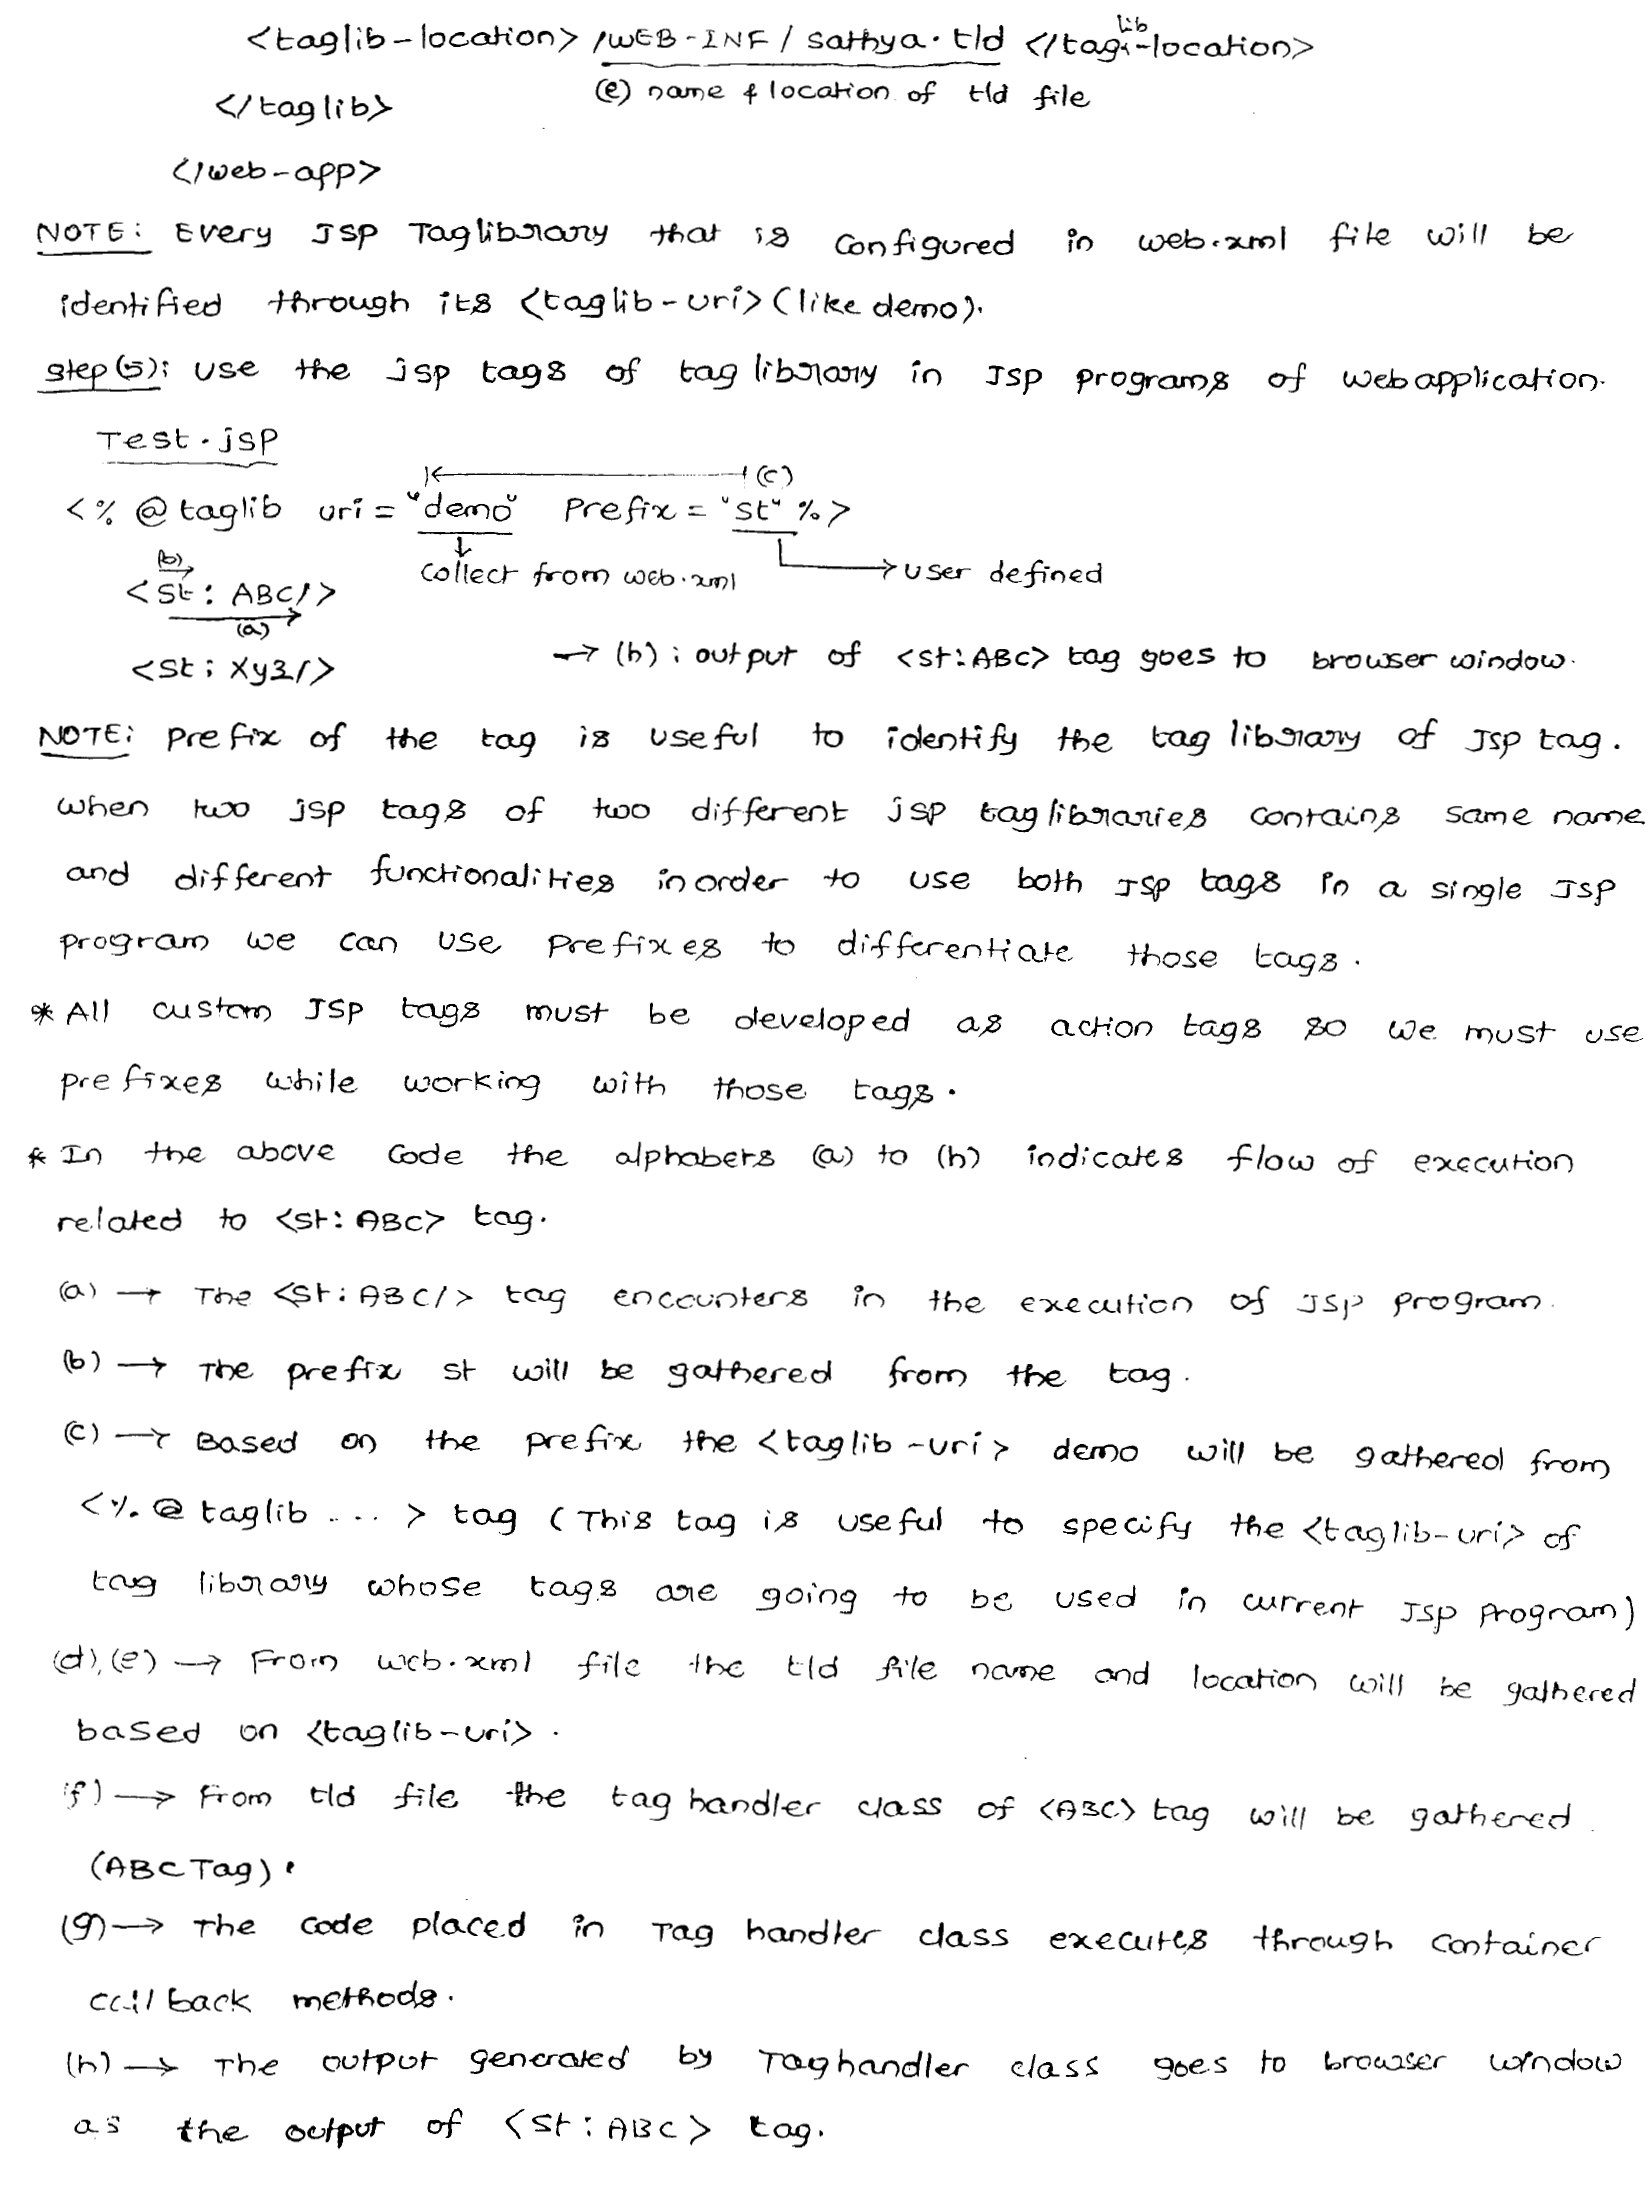 <taglib-location> /WEB-INF/sathya.tld </taglib-location>
(e) name & location of tld file
</taglib>
</web-app>
NOTE: Every JSP Taglibrary that is configured in web.xml file will be
identified through its <taglib-uri> (like demo).
step(5): use the jsp tags of tag library in JSP programs of webapplication.
Test.jsp
(c)
<%@taglib uri="demo" Prefix="st"%>
(b)
collect from web.xml → user defined
<st:ABC/>
(a)
→ (h): output of <st:ABC> tag goes to browser window.
<st:xyz/>
NOTE: Prefix of the tag is useful to identify the tag library of JSP tag.
when two jsp tags of two different jsp taglibraries contains same name
and different functionalities inorder to use both JSP tags in a single JSP
program we can use prefixes to differentiate those tags.
* All custom JSP tags must be developed as action tags so we must use
prefixes while working with those tags.
* In the above code the alphabets (a) to (h) indicates flow of execution
related to <st:ABC> tag.
(a) → The <st:ABC/> tag encounters in the execution of JSP program.
(b) → The prefix st will be gathered from the tag.
(c) → Based on the prefix the <taglib-uri> demo will be gathered from
<%@ taglib ....> tag (This tag is useful to specify the <taglib-uri> of
tag library whose tags are going to be used in current JSP program)
(d),(e) → From web.xml file the tld file name and location will be gathered
based on <taglib-uri>.
(f) → From tld file the tag handler class of <ABC> tag will be gathered
(ABCTag).
(g) → The code placed in Tag handler class executes through container
callback methods.
(h) → The output generated by Taghandler class goes to browser window
as the output of <st:ABC> tag.